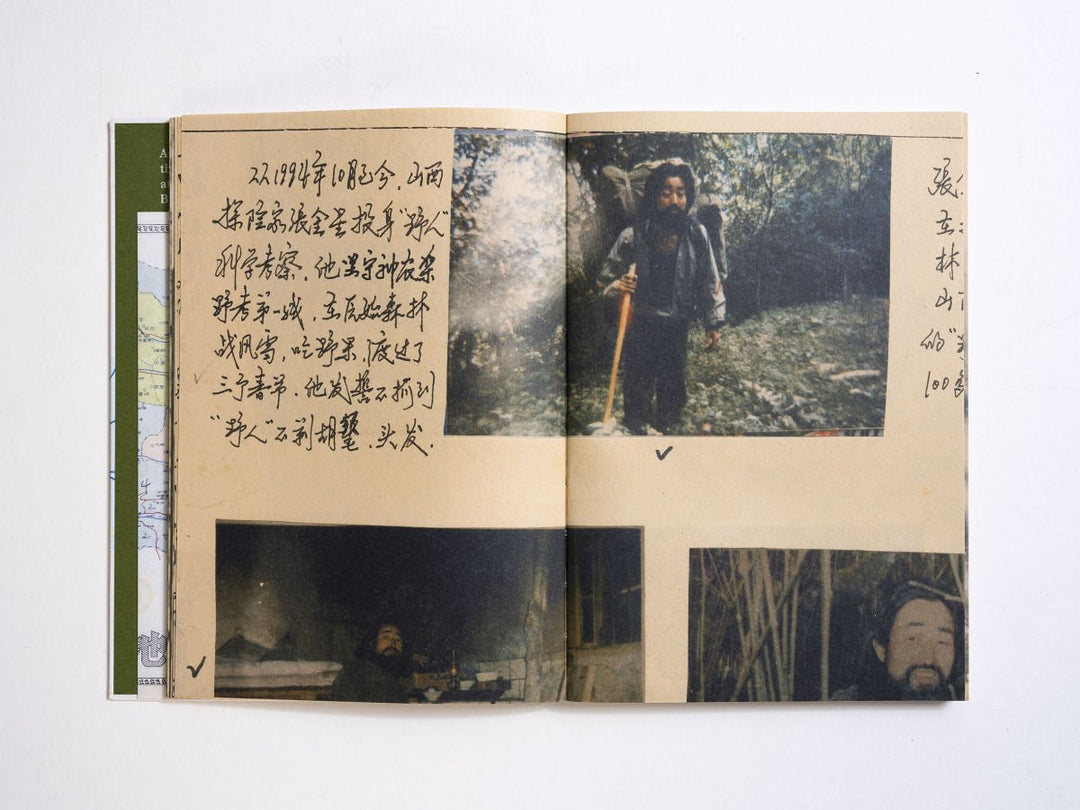 从1994年10月至今，山西
探险家張金星投身"野人"
科学考察，他坚守神农架
野考第一线，在原始森林
战风雪，吃野果，度过了
三个春节，他发誓不抓到
"野人"不剃胡鬚、头发．
張
在
林
山
的"
100多
A
th
a
B